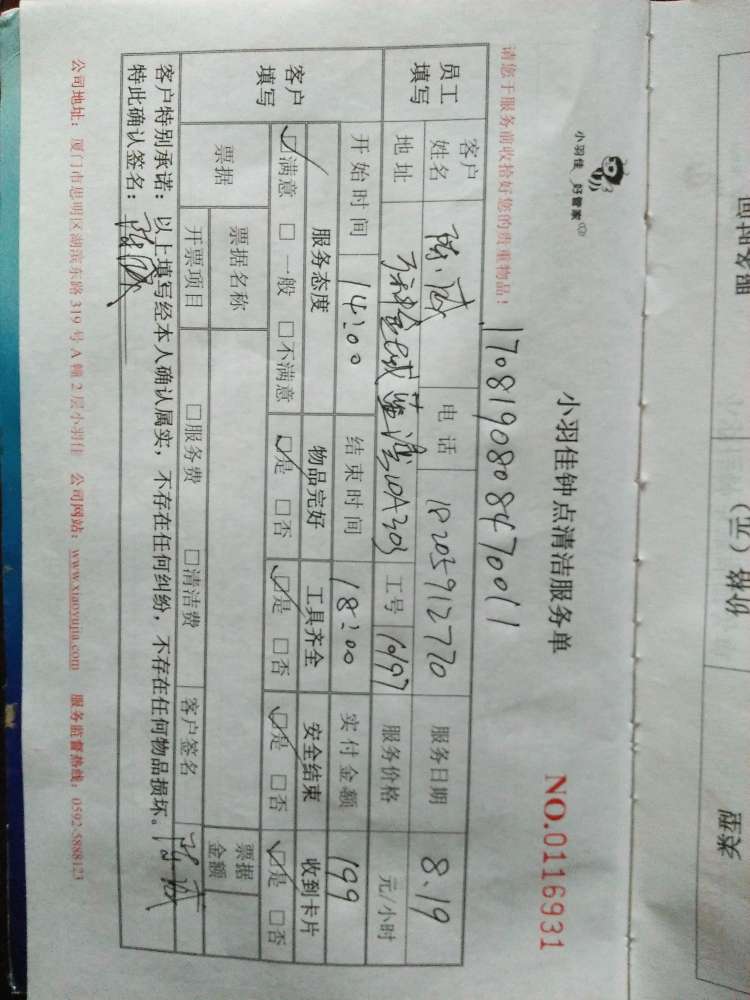 小羽佳 好管家
小羽佳钟点清洁服务单
NO.0116931
请您于服务前收拾好您的贵重物品！
1708190808470011
员工填写
客户姓名 陈诚 电话 18205912770 服务日期 8.19
地址 10A203 工号 服务价格 元/小时
客户填写
开始时间 14:00 结束时间 18:00 实付金额 199
服务态度 物品完好 工具齐全 安全结束 收到卡片
☑满意 □一般 □不满意 ☑是 □否 ☑是 □否 ☑是 □否 ☑是 □否
票据 票据名称 票据金额
开票项目 □服务费 □清洁费 客户签名 陈诚
客户特别承诺：以上填写经本人确认属实，不存在任何纠纷，不存在任何物品损坏。
特此确认签名：陈诚
公司地址：厦门市思明区湖滨东路319号A幢2层小羽佳 公司网站：www.xiaoyujia.com 服务监督热线：0592-5888123
价格（业）